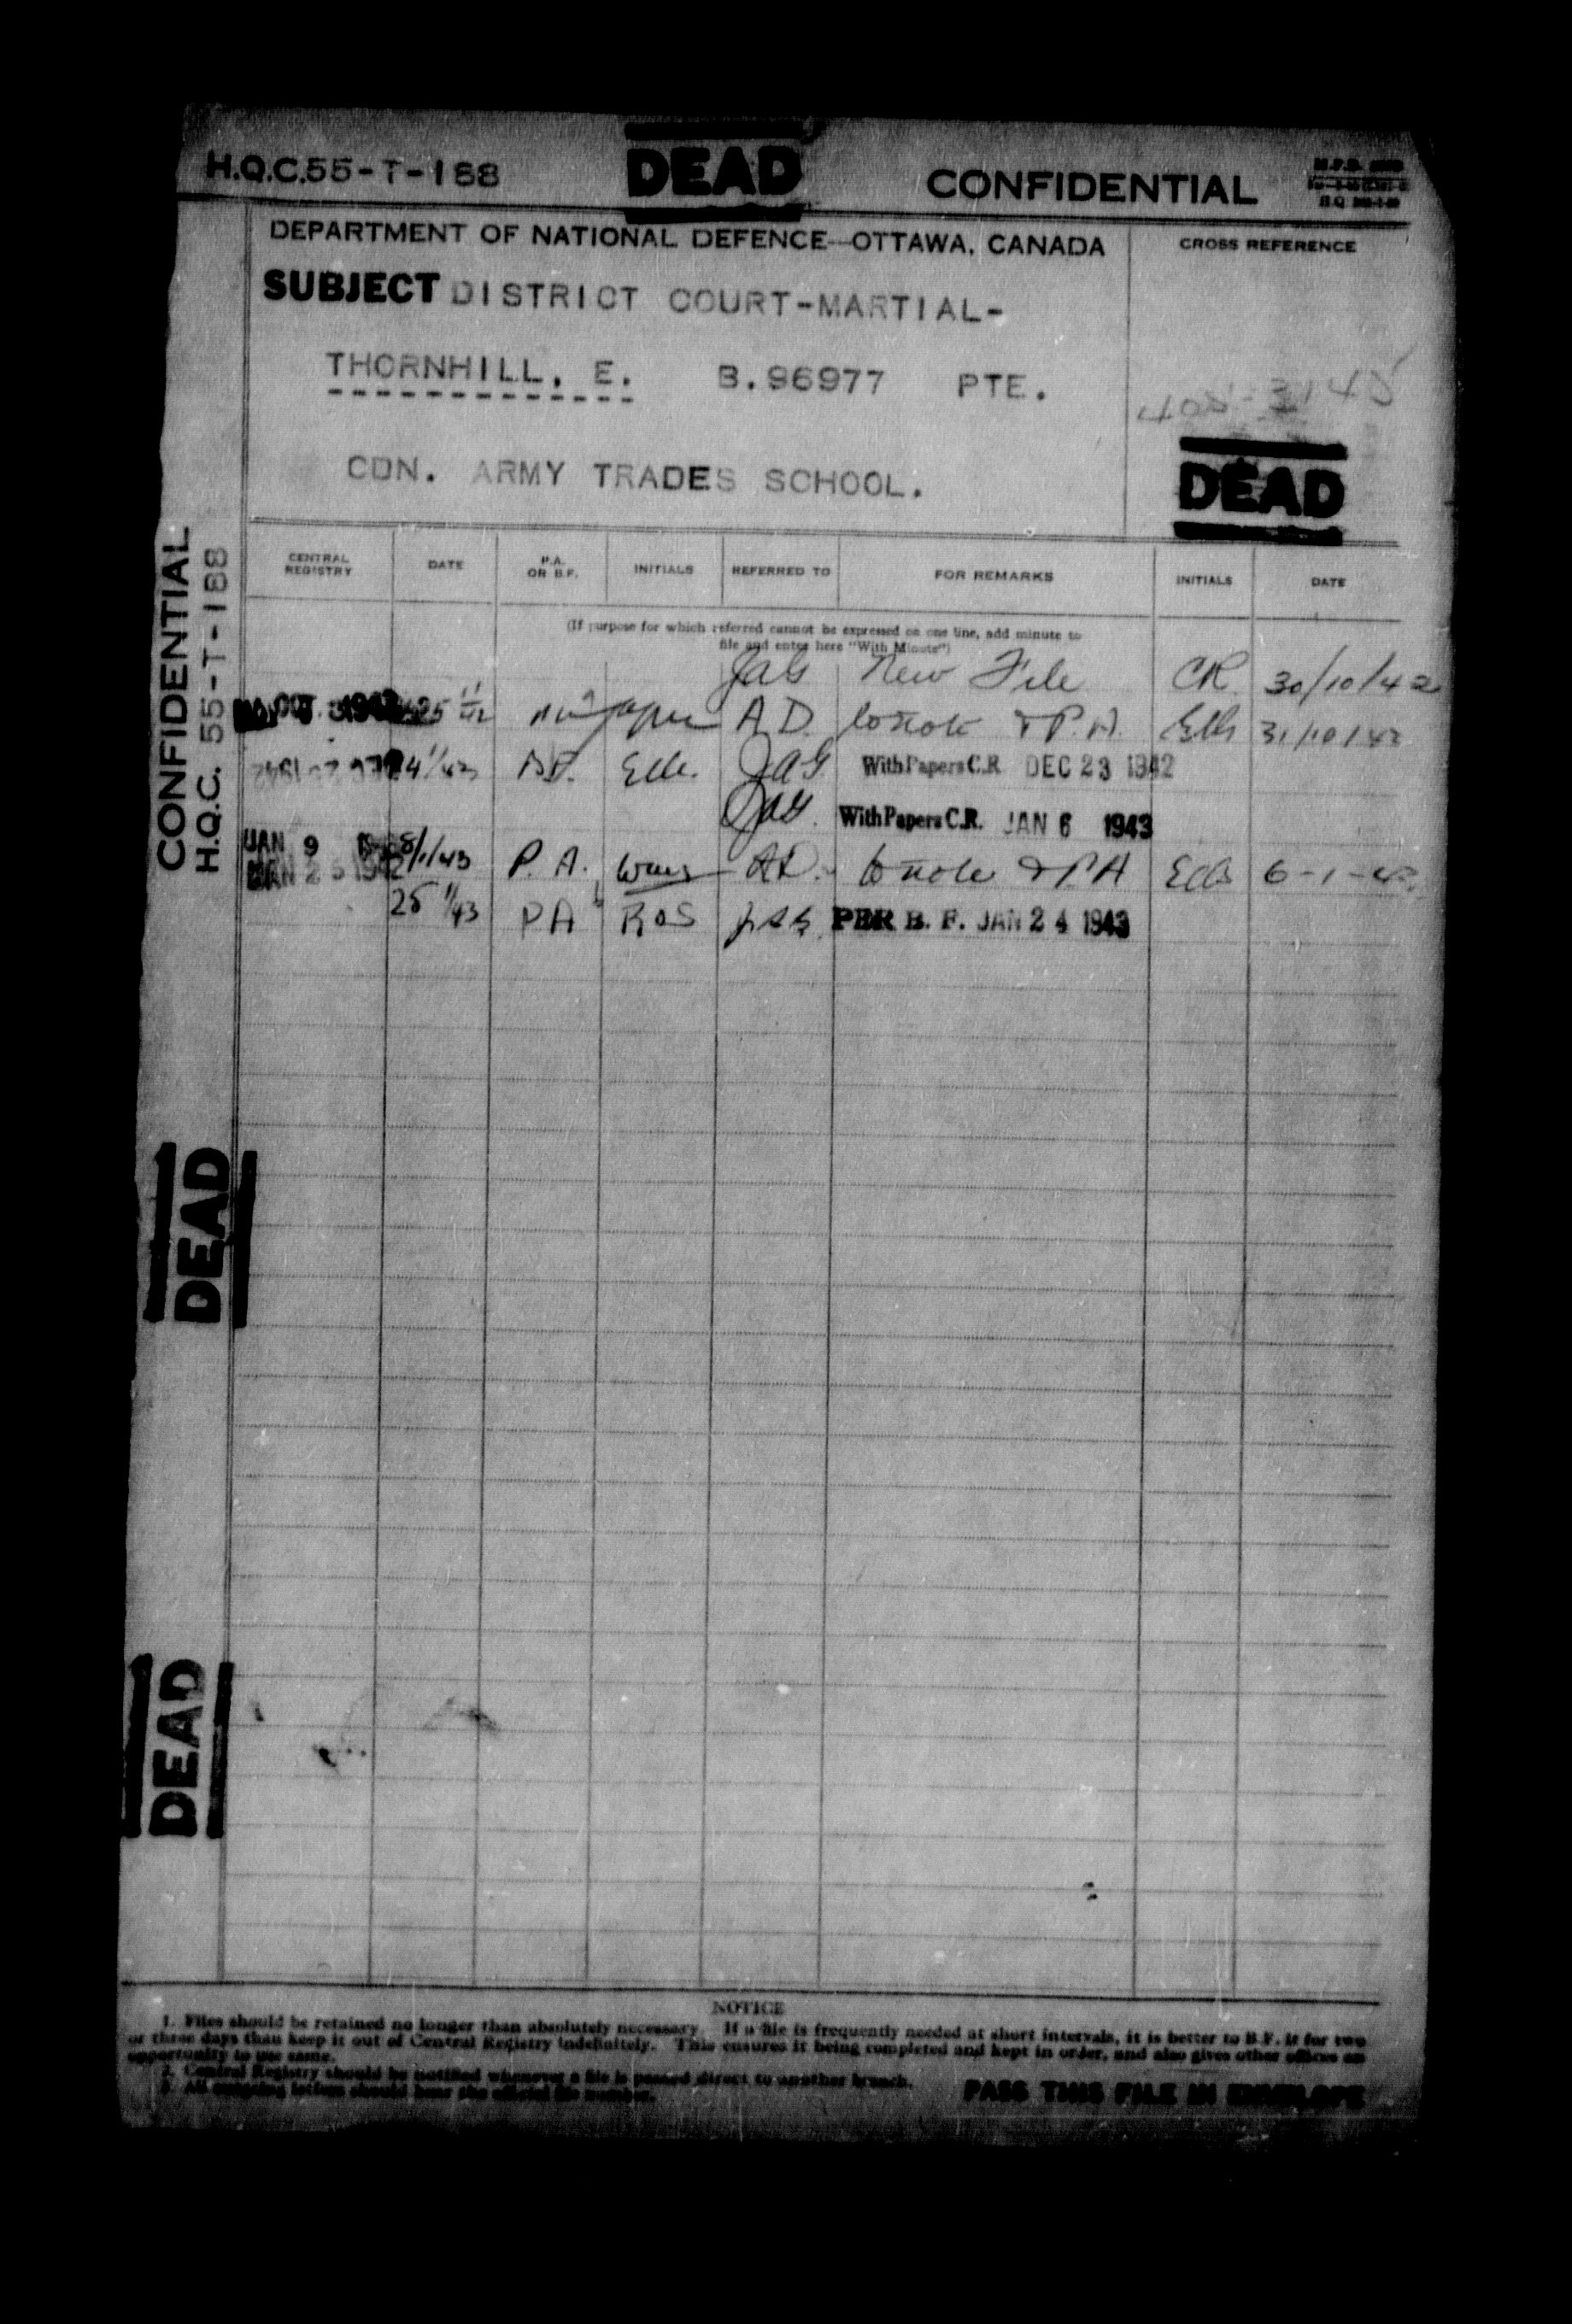 H.Q.C.55-T-188
DEAD
CONFIDENTIAL
DEPARTMENT OF NATIONAL DEFENCE—OTTAWA, CANADA
CROSS REFERENCE
SUBJECT DISTRICT COURT-MARTIAL-
THORNHILL, E. B.96977 PTE.
CDN. ARMY TRADES SCHOOL.
DEAD
CONFIDENTIAL
H.Q.C. 55-T-188
CENTRAL REGISTRY DATE P.A. OR B.F. INITIALS REFERRED TO FOR REMARKS INITIALS DATE
(If purpose for which referred cannot be expressed on one line, add minute to
file and enter here "With Minute")
JAG New File CR 30/10/42
A.D. to note & P.A. 31/10/42
B.F. JAG With Papers C.R. DEC 23 1942
JAG. With Papers C.R. JAN 6 1943
JAN 9 8/1/43 P.A. A.D. to note & P.A 6-1-43
25 1/43 PA ROS JAG PER B. F. JAN 24 1943
DEAD
DEAD
NOTICE
1. Files should be retained no longer than absolutely necessary. If a file is frequently needed at short intervals, it is better to B.F. it for two
or three days than keep it out of Central Registry indefinitely. This ensures it being completed and kept in order, and also gives other offices an
opportunity to use same.
2. Central Registry should be notified whenever a file is passed direct to another branch.
3. All outgoing letters should bear the official file number.
PASS THIS FILE IN ENVELOPE